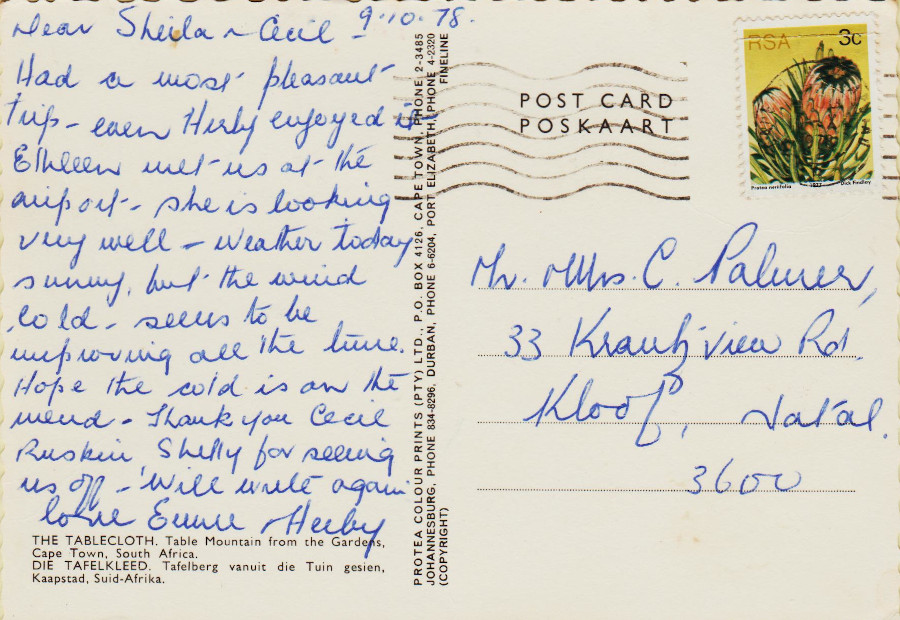 9.10.78.
Dear Sheila & Cecil -
Had a most pleasant
trip - even Herby enjoyed it
Ethleen met us at the
airport - she is looking
very well - weather today
sunny, but the wind
cold - seems to be
improving all the time.
Hope the cold is on the
mend - Thank you Cecil
Ruskin Shelly for seeing
us off - Will write again
love Eunice & Herby
THE TABLECLOTH. Table Mountain from the Gardens,
Cape Town, South Africa.
DIE TAFELKLEED. Tafelberg vanuit die Tuin gesien,
Kaapstad, Suid-Afrika.
PROTEA COLOUR PRINTS (PTY) LTD., P.O. BOX 4126, CAPE TOWN, PHONE 2-3485
JOHANNESBURG, PHONE 834-8296, DURBAN, PHONE 6-6204, PORT ELIZABETH, PHONE 4-2320
(COPYRIGHT) FINELINE
POST CARD
POSKAART
RSA 3c
Protea neriifolia 1977 Dick Findlay
Mr. & Mrs. C. Palmer,
33 Krantz View Rd.
Kloof, Natal.
3600